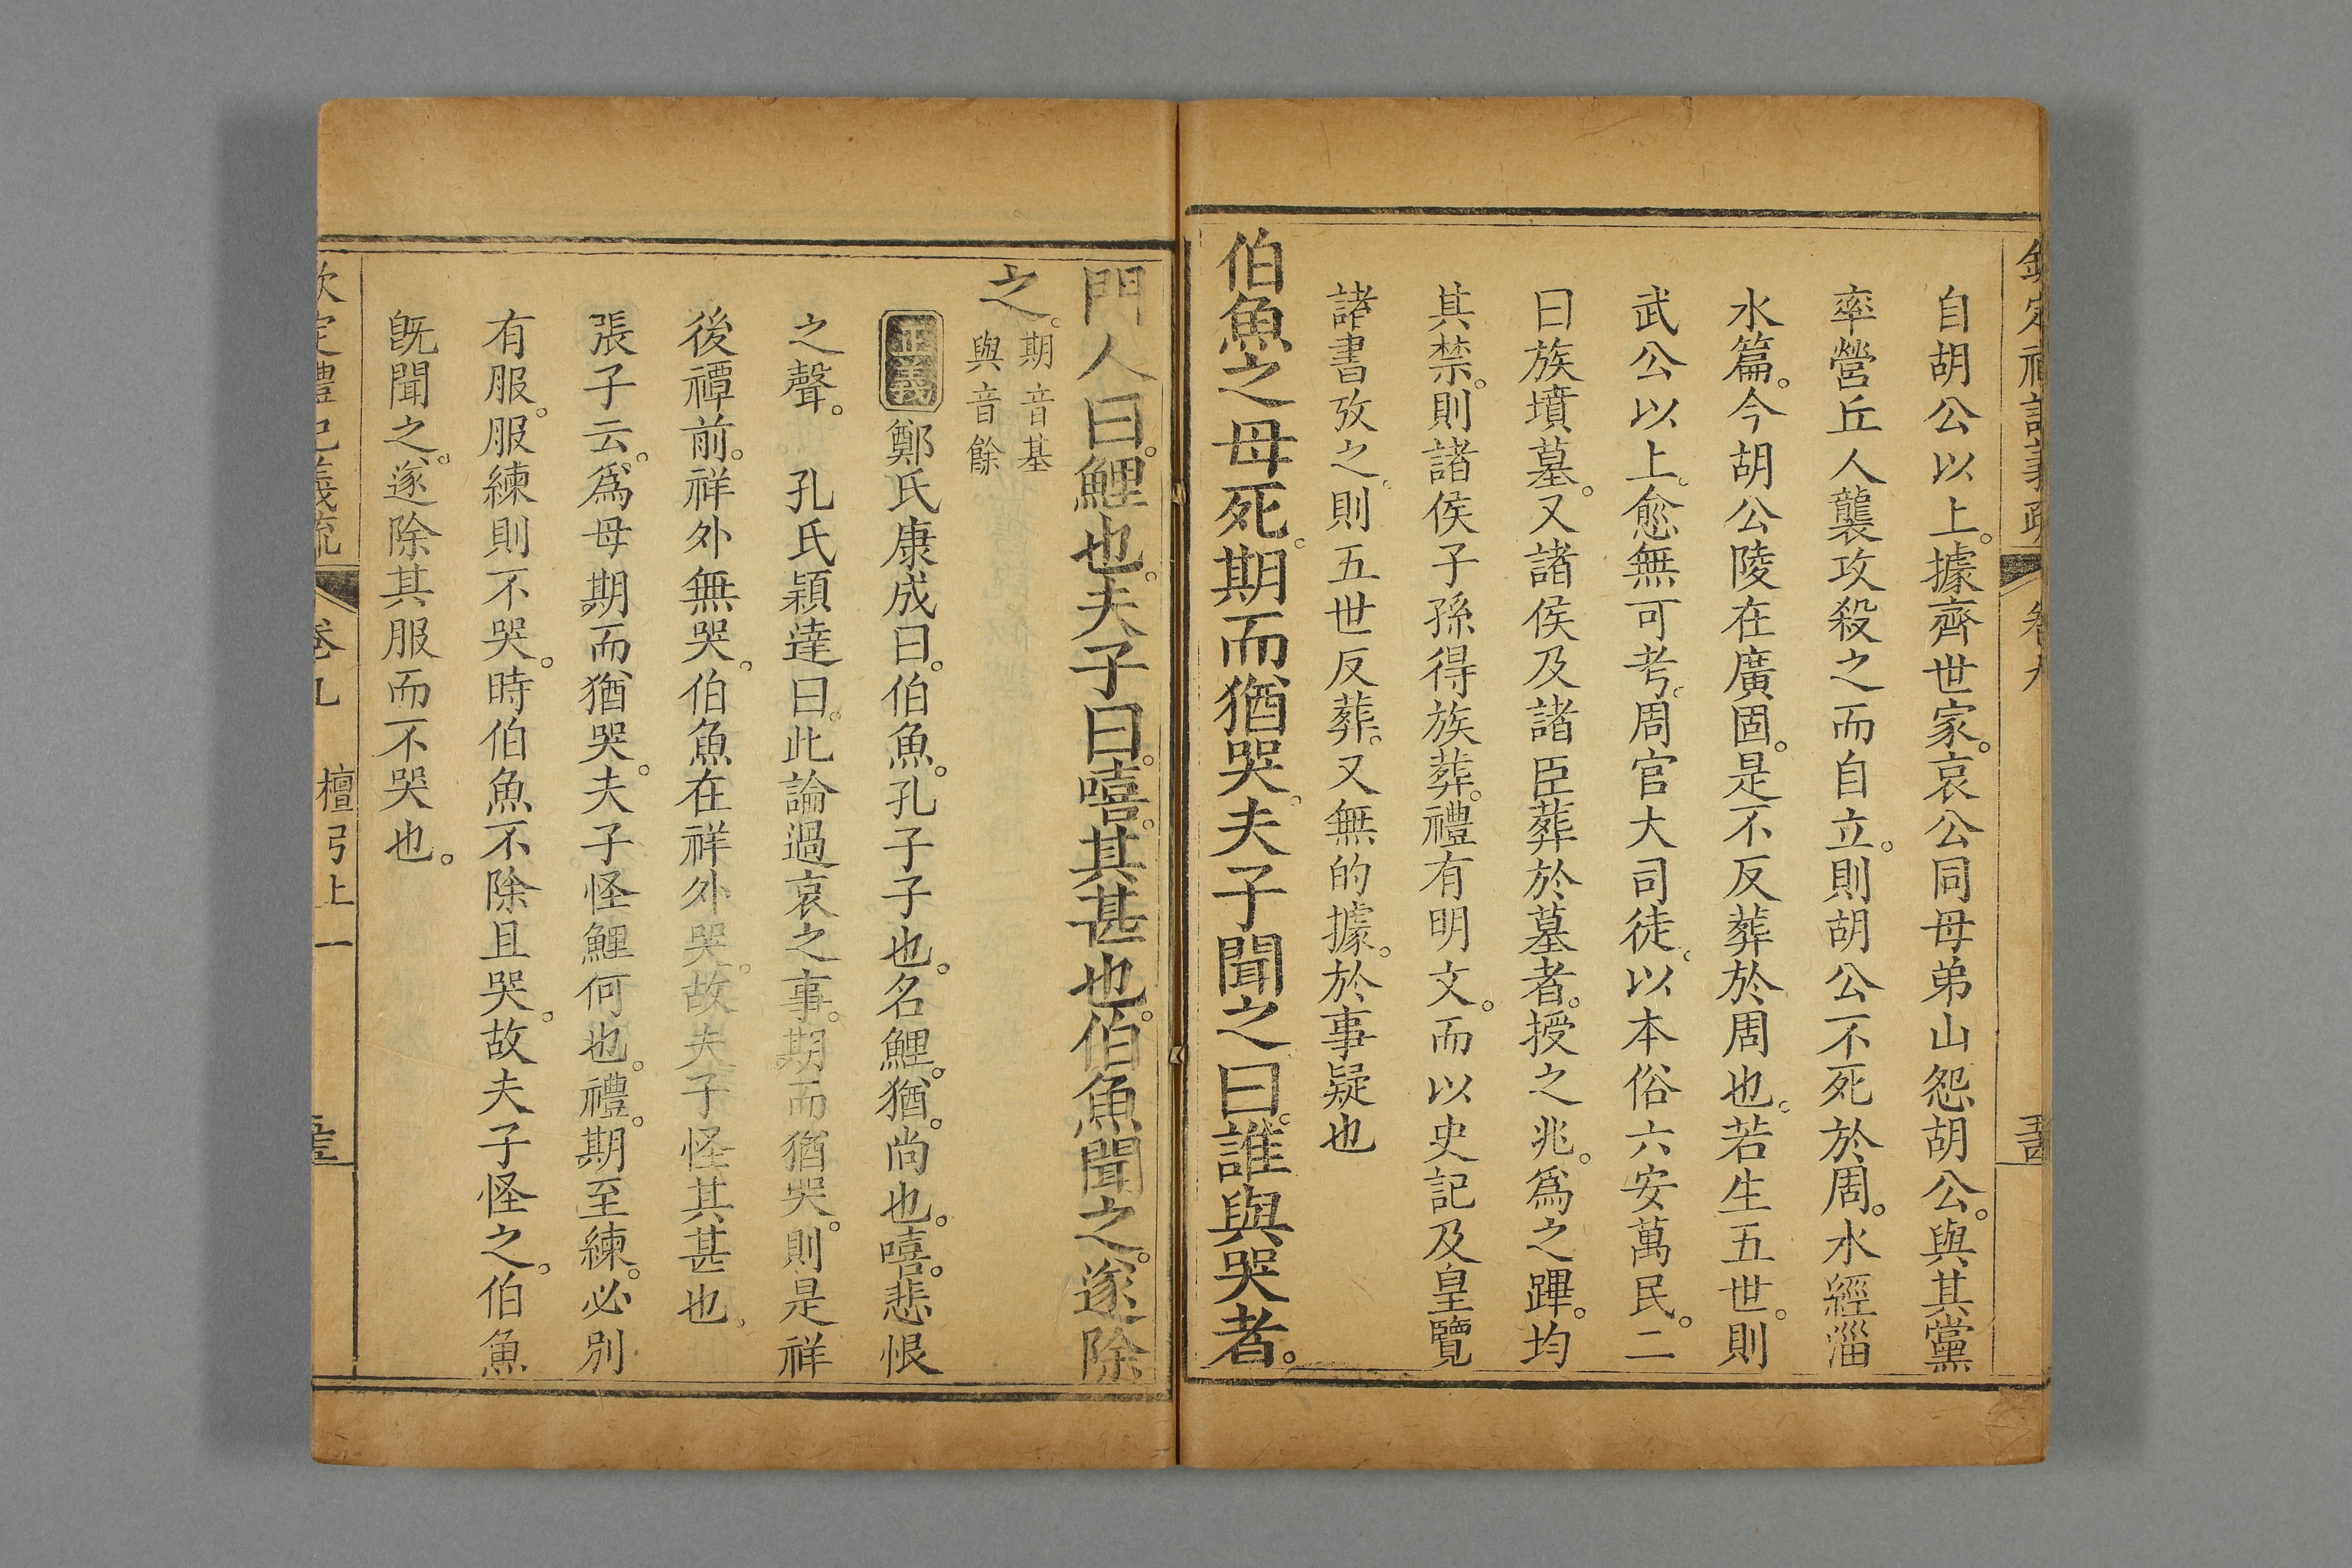 欽定禮記義疏 卷九
自胡公以上。據齊世家。哀公同母弟山怨胡公。與其黨
率營丘人襲攻殺之而自立。則胡公不死於周。水經淄
水篇。今胡公陵在廣固。是不反葬於周也。若生五世。則
武公以上。愈無可考。周官大司徒。以本俗六安萬民。二
曰族墳墓。又諸侯及諸臣葬於墓者。授之兆。爲之蹕。均
其禁。則諸侯子孫得族葬。禮有明文。而以史記及皇覽
諸書攷之。則五世反葬。又無的據。於事疑也
伯魚之母死。期而猶哭。夫子聞之曰。誰與哭者。
門人曰。鯉也。夫子曰。嘻。其甚也。伯魚聞之。遂除
之。期音基與音餘
正義 鄭氏康成曰。伯魚。孔子子也。名鯉。猶。尚也。嘻。悲恨
之聲。 孔氏穎達曰。此論過哀之事。期而猶哭。則是祥
後禫前。祥外無哭。伯魚在祥外哭。故夫子怪其甚也。
張子云。爲母期而猶哭。夫子怪鯉何也。禮。期至練。必別
有服。服練則不哭。時伯魚不除且哭。故夫子怪之。伯魚
既聞之。遂除其服而不哭也。
欽定禮記義疏 卷九 檀弓上一